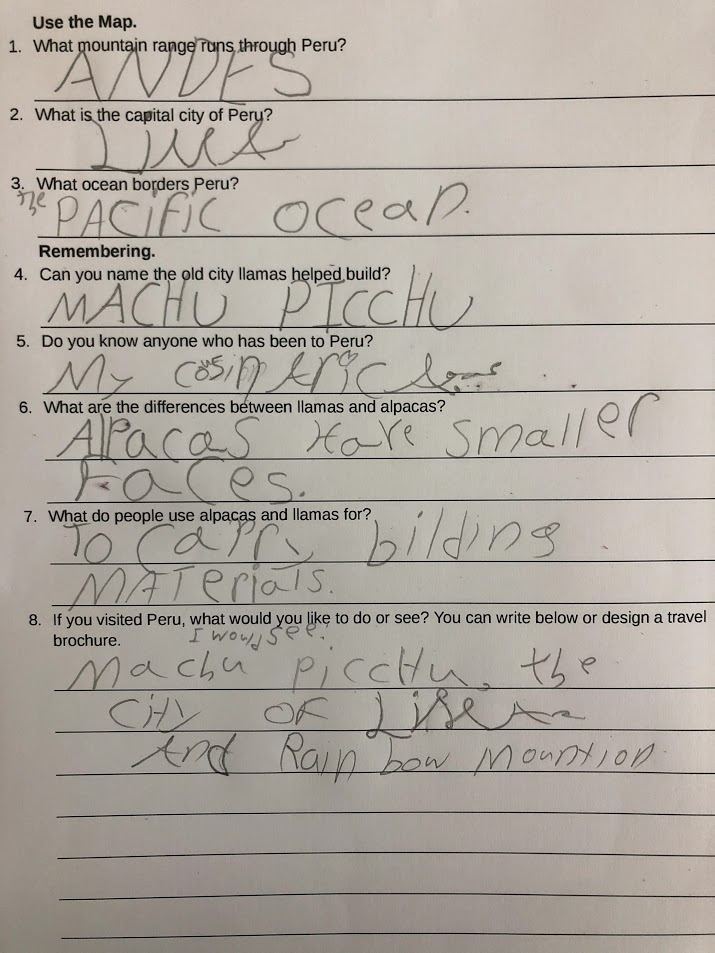 Use the Map.
1. What mountain range runs through Peru?
ANDES
2. What is the capital city of Peru?
3. What ocean borders Peru?
the PACiFiC ocean.
Remembering.
4. Can you name the old city llamas helped build?
MACHU PICCHU
5. Do you know anyone who has been to Peru?
My
6. What are the differences between llamas and alpacas?
Alpacas Have smaller
Faces.
7. What do people use alpacas and llamas for?
To carry bilding
MATerials.
8. If you visited Peru, what would you like to do or see? You can write below or design a travel
brochure.
I would see:
Machu piccHu, the
City OF
And Rain bow mountion